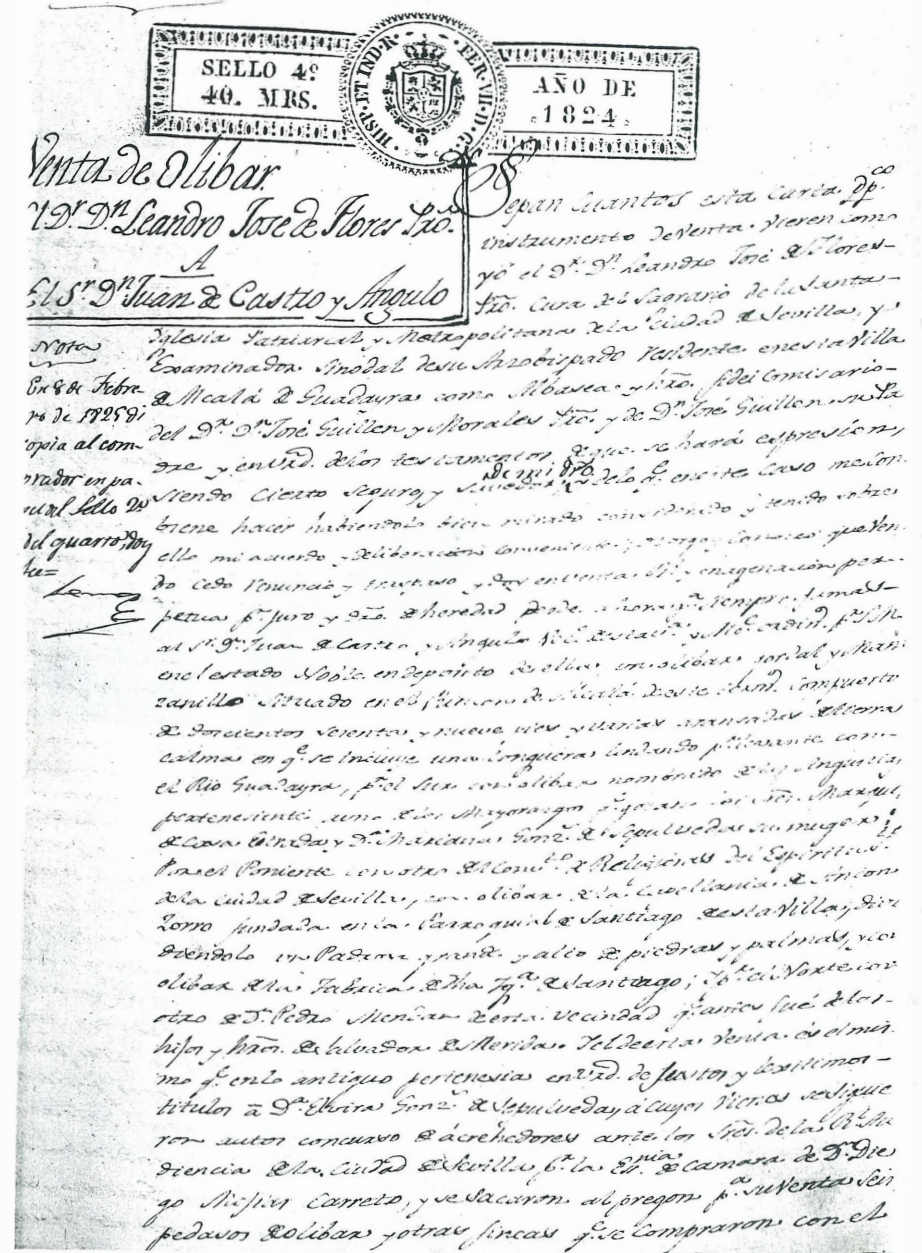 SELLO 4º
40. MRS.
HISP. ET IND. R. FER. VII. D. G.
AÑO DE
1824
Venta de Olibar
l Dr. Dn. Leandro Jose de Flores Pro.
A
El Sr. Dn. Juan de Castro y Angulo
Nota
En 8 de Febre
ro de 1825 di
opia al com
prador en pa
el Sello 2º
del quarto, doy
fee=
Sepan Cuantos esta Carta pco.
instrumento de Venta Vieren como
yo el Dr. Dn. Leandro José de Flores
Pro. Cura del Sagrario de la Santa
Iglesia Patriarcal y Metropolitana de la Ciudad de Sevilla, y
Examinador Sinodal de su Arzobispado Residente en esta Villa
de Alcalá de Guadayra como Albasea y fidei Comisario
del Dr. Dn. José Guillen y Morales Pro. y de Dn. José Guillen su Pa
dre y en vrd. de los testamentos de que se hará expresion,
siendo Cierto seguro, y de mi dro. de lo q. en este Caso me Con
biene hacer habiendolo bien mirado considerado y tenido sobre
ello mi acuerdo y deliberacion conveniente; otorgo y Conosco que Ven
do cedo renuncio y traspaso y doy en venta y enagenacion per
petua pr. juro y dro. de heredad desde ahora pa. siempre jamas
al Sr. Dn. Juan de Castro y Angulo
en el estado Noble en deposito de ella, un olibar gordal y Man
zanillo situado en el de Alcalá de este compuesto
de doscientos sesenta y nueve pies y varias aransadas de tierra
calma en q. se incluye una longuera lindando pr. levante con
el Rio Guadayra, pr. el Sur con olibar nombrado de las Angustias
perteneciente a uno de los Mayorasgos q. gosan los Sres. Marqus.
de Casa Estrada y Da. Mariana Gonz. de Sepulveda su muger
Por el Poniente con otro del Convto. de Religiosas del Espiritu St.
de la Ciudad de Sevilla, con olibar de la Capellania de Anton
Zorro fundada en la Parroquial de Santiago de esta Villa, divi
diendolo un Padron grande y alto de piedras y palmas, y con
olibar de la Fabrica de dha Yga. de Santiago; Pr. el Norte con
otro de Dn. Pedro Mendez de esta Vecindad q. antes fué de los
hijos y hros. de Salvador de Merida. Y el de esta Venta és el mis
mo q. en lo antiguo pertenesia en vrd. de justos y lexitimos
titulos á Da. Elvira Gonz. de Sepulveda, á cuyos Vienes se sigue
ron autos concurso de acrehedores ante los Sres. de la Rl. Au
diencia de la Ciudad de Sevilla, pr. la Esnia. de Camara de Dn. Die
go Carreto, y se Sacaron al pregon pa. su Venta seis
pedasos de olibar y otras fincas q. se Compraron con el